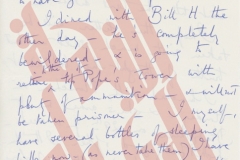 to have g
I dined with Bill H the
other day — he's completely
bewildered & is going to
retire to the Pope's Tower with
plenty of ammunition & will not
be taken prisoner — I, myself, —
have several bottles of sleeping
pills now (as never take them) I have